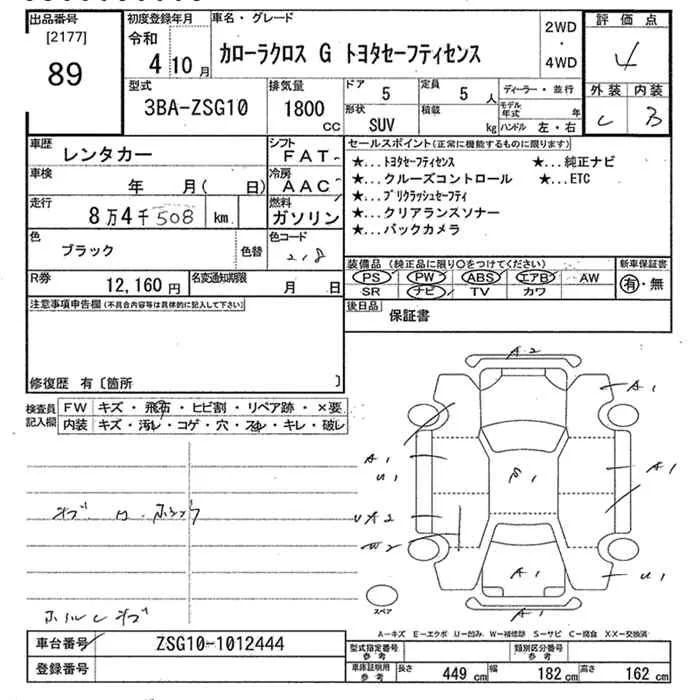 出品番号 初度登録年月 車名・グレード 2WD 評価点
[2177] 令和 ・
89 4年10月 カローラクロス G トヨタセーフティセンス 4WD 4
型式 排気量 ドア 5 定員 5人 ディーラー・並行 外装 内装
3BA-ZSG10 1800cc 形状 SUV 積載 kg モデル年式 年 C B
ハンドル 左・右
車歴 レンタカー シフト FAT セールスポイント(正常に機能するものに限ります)
車検 年 月( 日) 冷房 AAC ★...トヨタセーフティセンス ★...純正ナビ
走行 8万4千508km 燃料 ガソリン ★...クルーズコントロール ★...ETC
★...プリクラッシュセーフティ
★...クリアランスソナー
★...バックカメラ
色 ブラック 色替 色コード 218
装備品(純正品に限り○をつけてください) 新車保証書
PS PW ABS エアB AW 有・無
SR ナビ TV カワ
R券 12,160円 名変通知期限 月 日
後日品 保証書
注意事項申告欄(不具合内容等は具体的に記入して下さい)
修復歴 有〔箇所 〕
検査員記入欄 FW キズ・飛石・ヒビ割・リペア跡・×要
内装 キズ・汚レ・コゲ・穴・スレ・キレ・破レ
A2
A1
A1
U1
A1
W2
A1
U1
A1
スペア
A-キズ E-エクボ U-凹み W-補修跡 S-サビ C-腐食 XX-交換済
車台番号 ZSG10-1012444
登録番号
型式指定番号 参考 類別区分番号 参考
車庫証明用 参考 長さ 449cm 幅 182cm 高さ 162cm